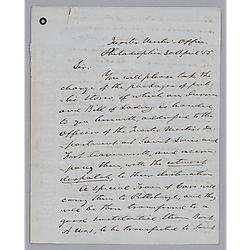 Quarter Master's Office
Philadelphia 30 April '55
Sir,
You will please take the
charge of the packages of pub-
lic stores of which an Invoice
and Bill of Lading is handed
to you herewith, addressed to the
Officers of the Quarter Master's De-
partment at Saint Louis and
Fort Leavenworth, and accom-
pany them, with the utmost
despatch, to their destination.
A special Train of Cars will
carry them to Pittsburgh, and they
will be then transferred to a
good, substantial Steam Boat,
to be transported to Saint